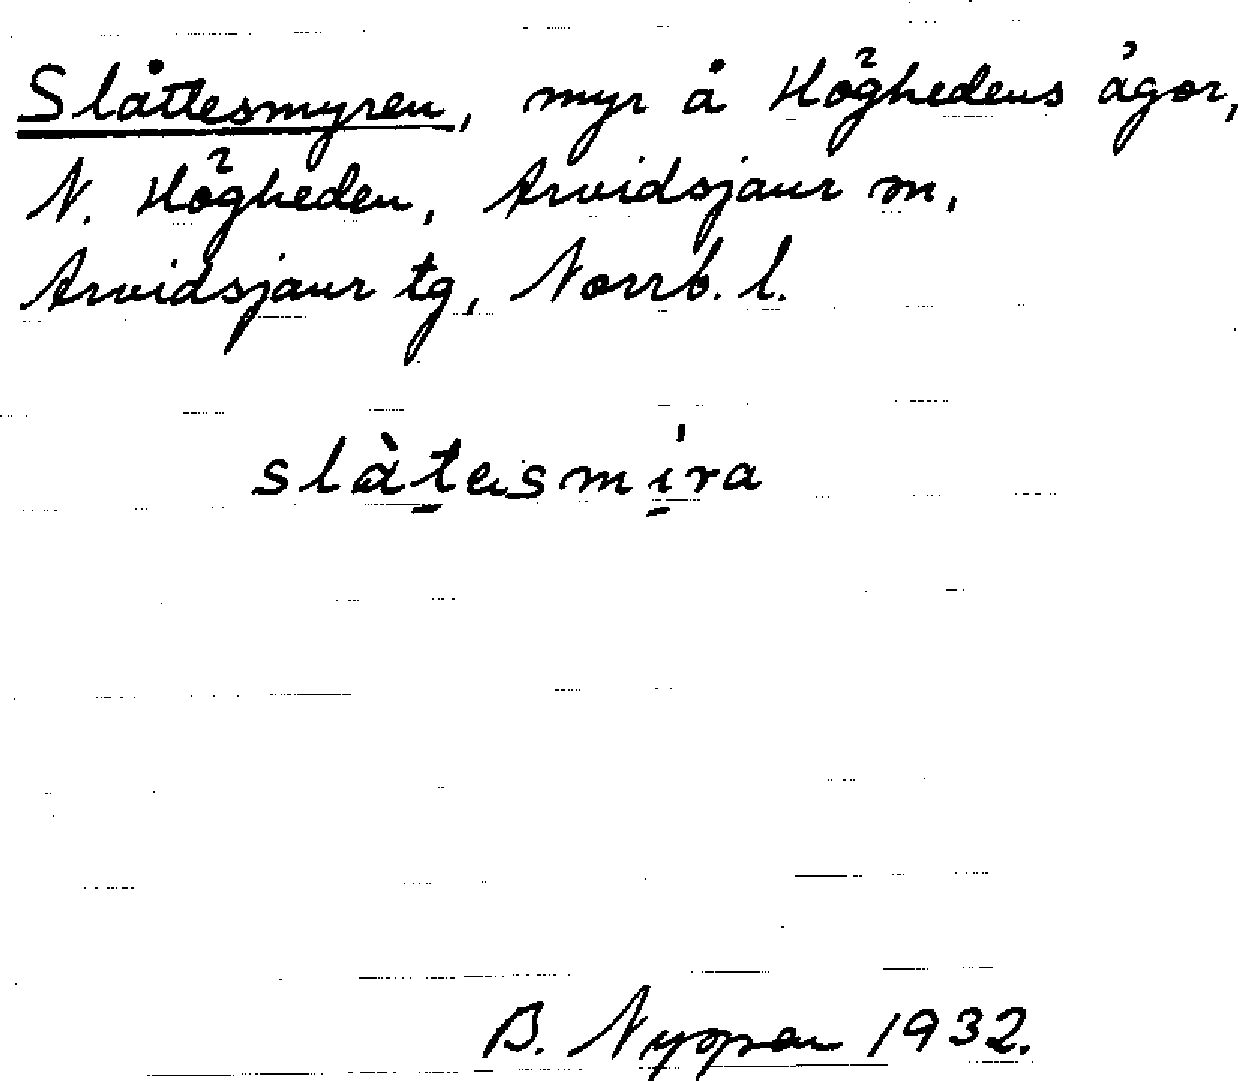 Slåttesmyren, myr å Höghedens ägor,
N. Högheden, Arvidsjaur sn,
Arvidsjaur tg, Norrb. l.
slàtesmi̱ra
B. 1932.